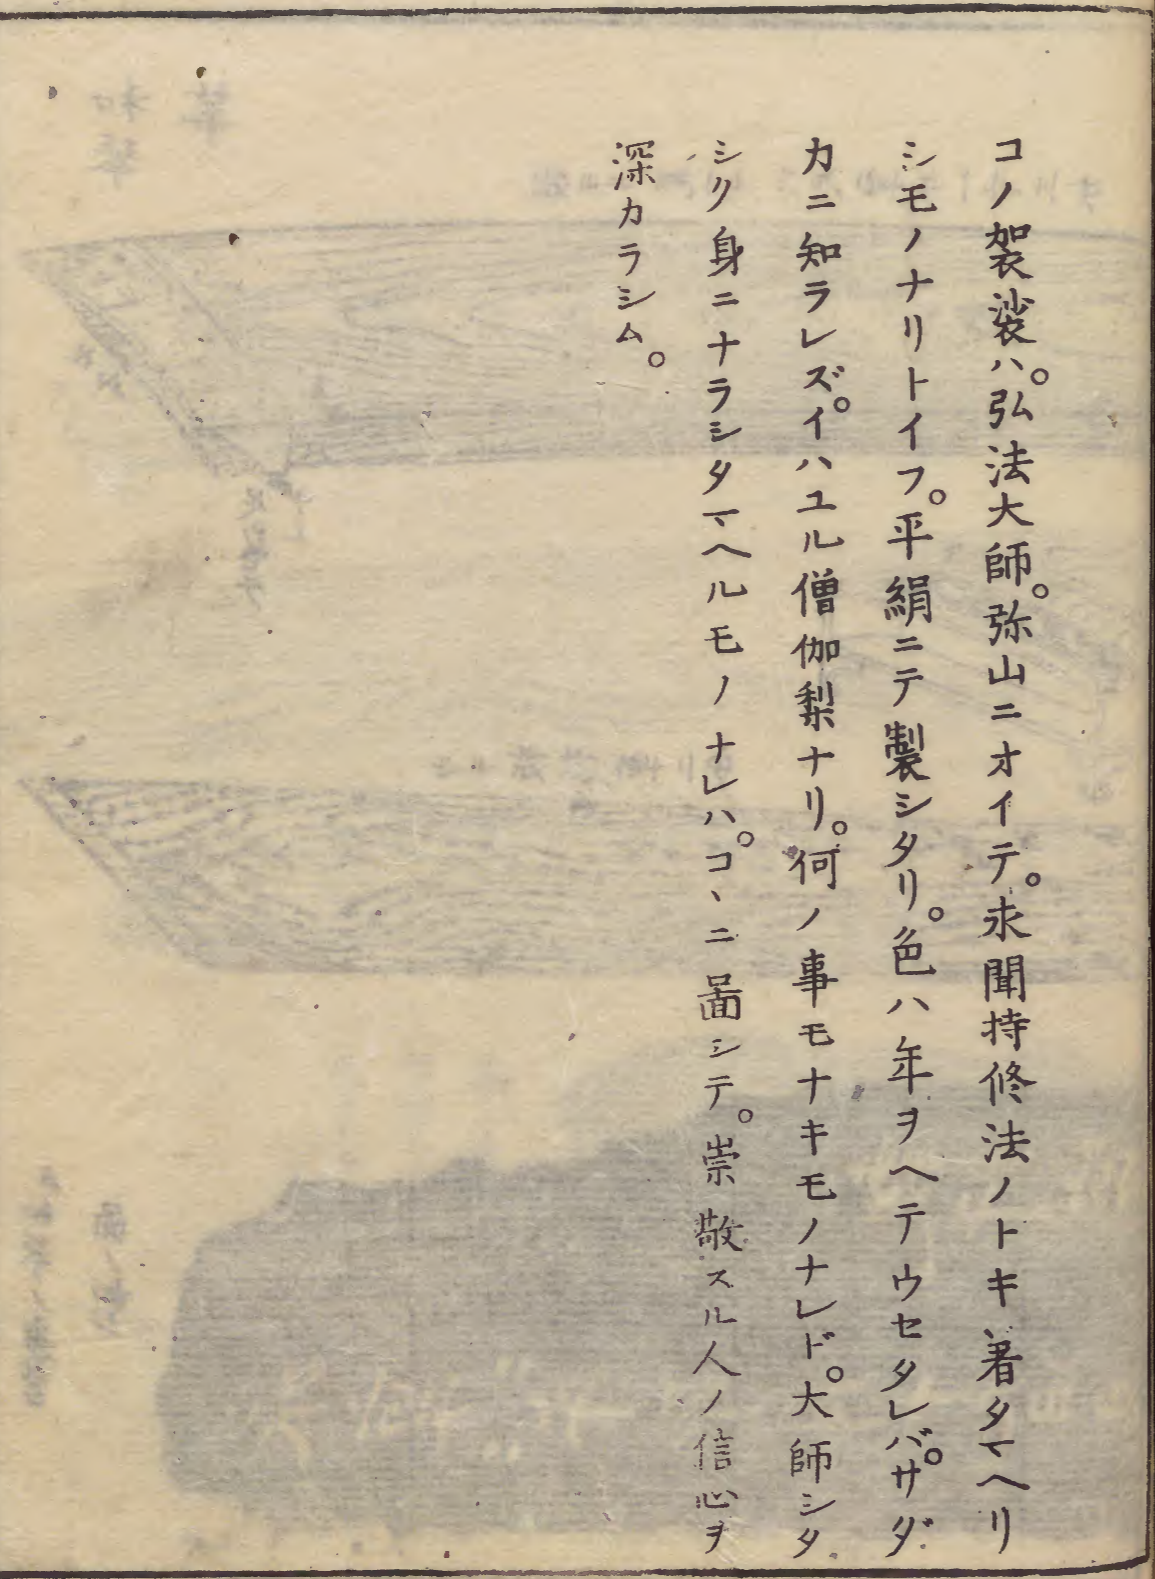 コノ袈裟ハ。弘法大師。弥山ニオイテ。求聞持修法ノトキ著タマヘリ
シモノナリトイフ。平絹ニテ製シタリ。色ハ年ヲヘテウセタレバ。サダ
カニ知ラレズ。イハユル僧伽梨ナリ。何ノ事モナキモノナレド。大師シタ
シク身ニナラシタマヘルモノナレハ。コヽニ啚シテ。崇敬スル人ノ信心ヲ
深カラシム。